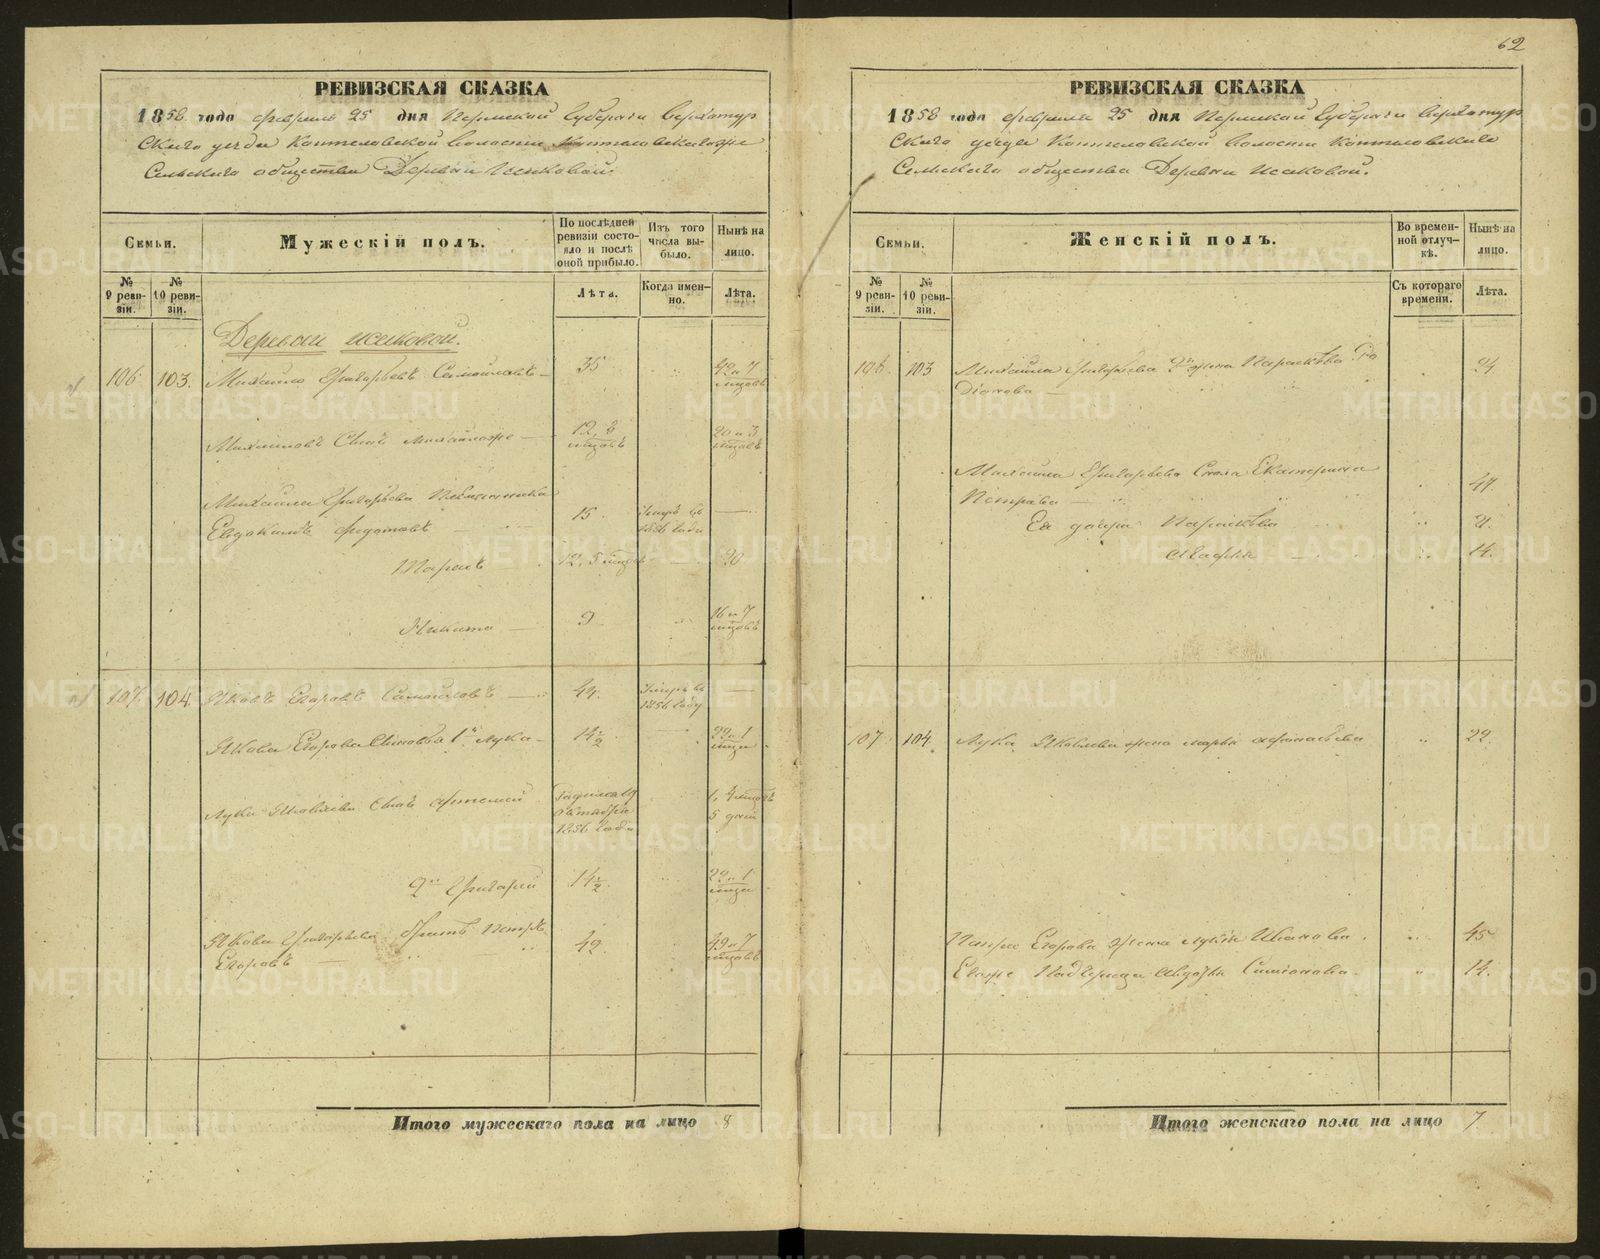 62
РЕВИЗСКАЯ СКАЗКА
1858 года февраля 25 дня Пермской Губернiи Верхотур
скаго уезда Коптеловской волости Коптеловскагоже
Сельскаго общества Деревни Исаковой.
Семьи.
Мужескiй полъ.
По послѣдней ревизiи состояло и послѣ оной прибыло.
Изъ того числа выбыло.
Нынѣ на лицо.
№ 9 ревизiи.
№ 10 ревизiи.
Лѣта.
Когда именно.
Лѣта.
Деревни Исаковой.
106. 103. Михайло Григорьевъ Самойловъ 35 42 и 7 мцовъ
Михайловъ Сынъ 12, 8 мцовъ 20 и 3 мцовъ
Михайла Григорьева
Евдокимъ Федотовъ 15 1856 года
Тарасъ 12, 5 мцовъ 20
Никита 9 16 и 7 мцовъ
107. 104. Яковъ Егоровъ Самойловъ 44. Умеръ въ 1856 году
Якова Егорова Сыновья 1й Лука 14½ 22 и 1 мцъ
Лука Яковлева Сынъ Октября 1856 года 1, 4 мцовъ 5 дней
2й Григорий 14½ 22 и 1 мцъ
Якова братъ Петръ
Егоровъ 42. 49 и 7 мцовъ
Итого мужескаго пола на лицо 8
РЕВИЗСКАЯ СКАЗКА
1858 года февраля 25 дня Пермской Губернiи Верхотур
скаго уезда Коптеловской волости Коптеловскаго
Сельскаго общества Деревни Исаковой.
Семьи.
Женскiй полъ.
Во временной отлучкѣ.
Нынѣ на лицо.
№ 9 ревизiи.
№ 10 ревизiи.
Съ котораго времени.
Лѣта.
106. 103 Михайла Григорьева 2я жена Парасковья Ро
дионова 24
Михайла Григорьева Екатерина
Петрова 47
Ея дочери Парасковья 21.
14.
107. 104. Лука Яковлева жена Марья 22.
Петра Егорова жена Иванова 45
Еяже Падчерица 14.
Итого женскаго пола на лицо 7
METRIKI.GASO-URAL.RU